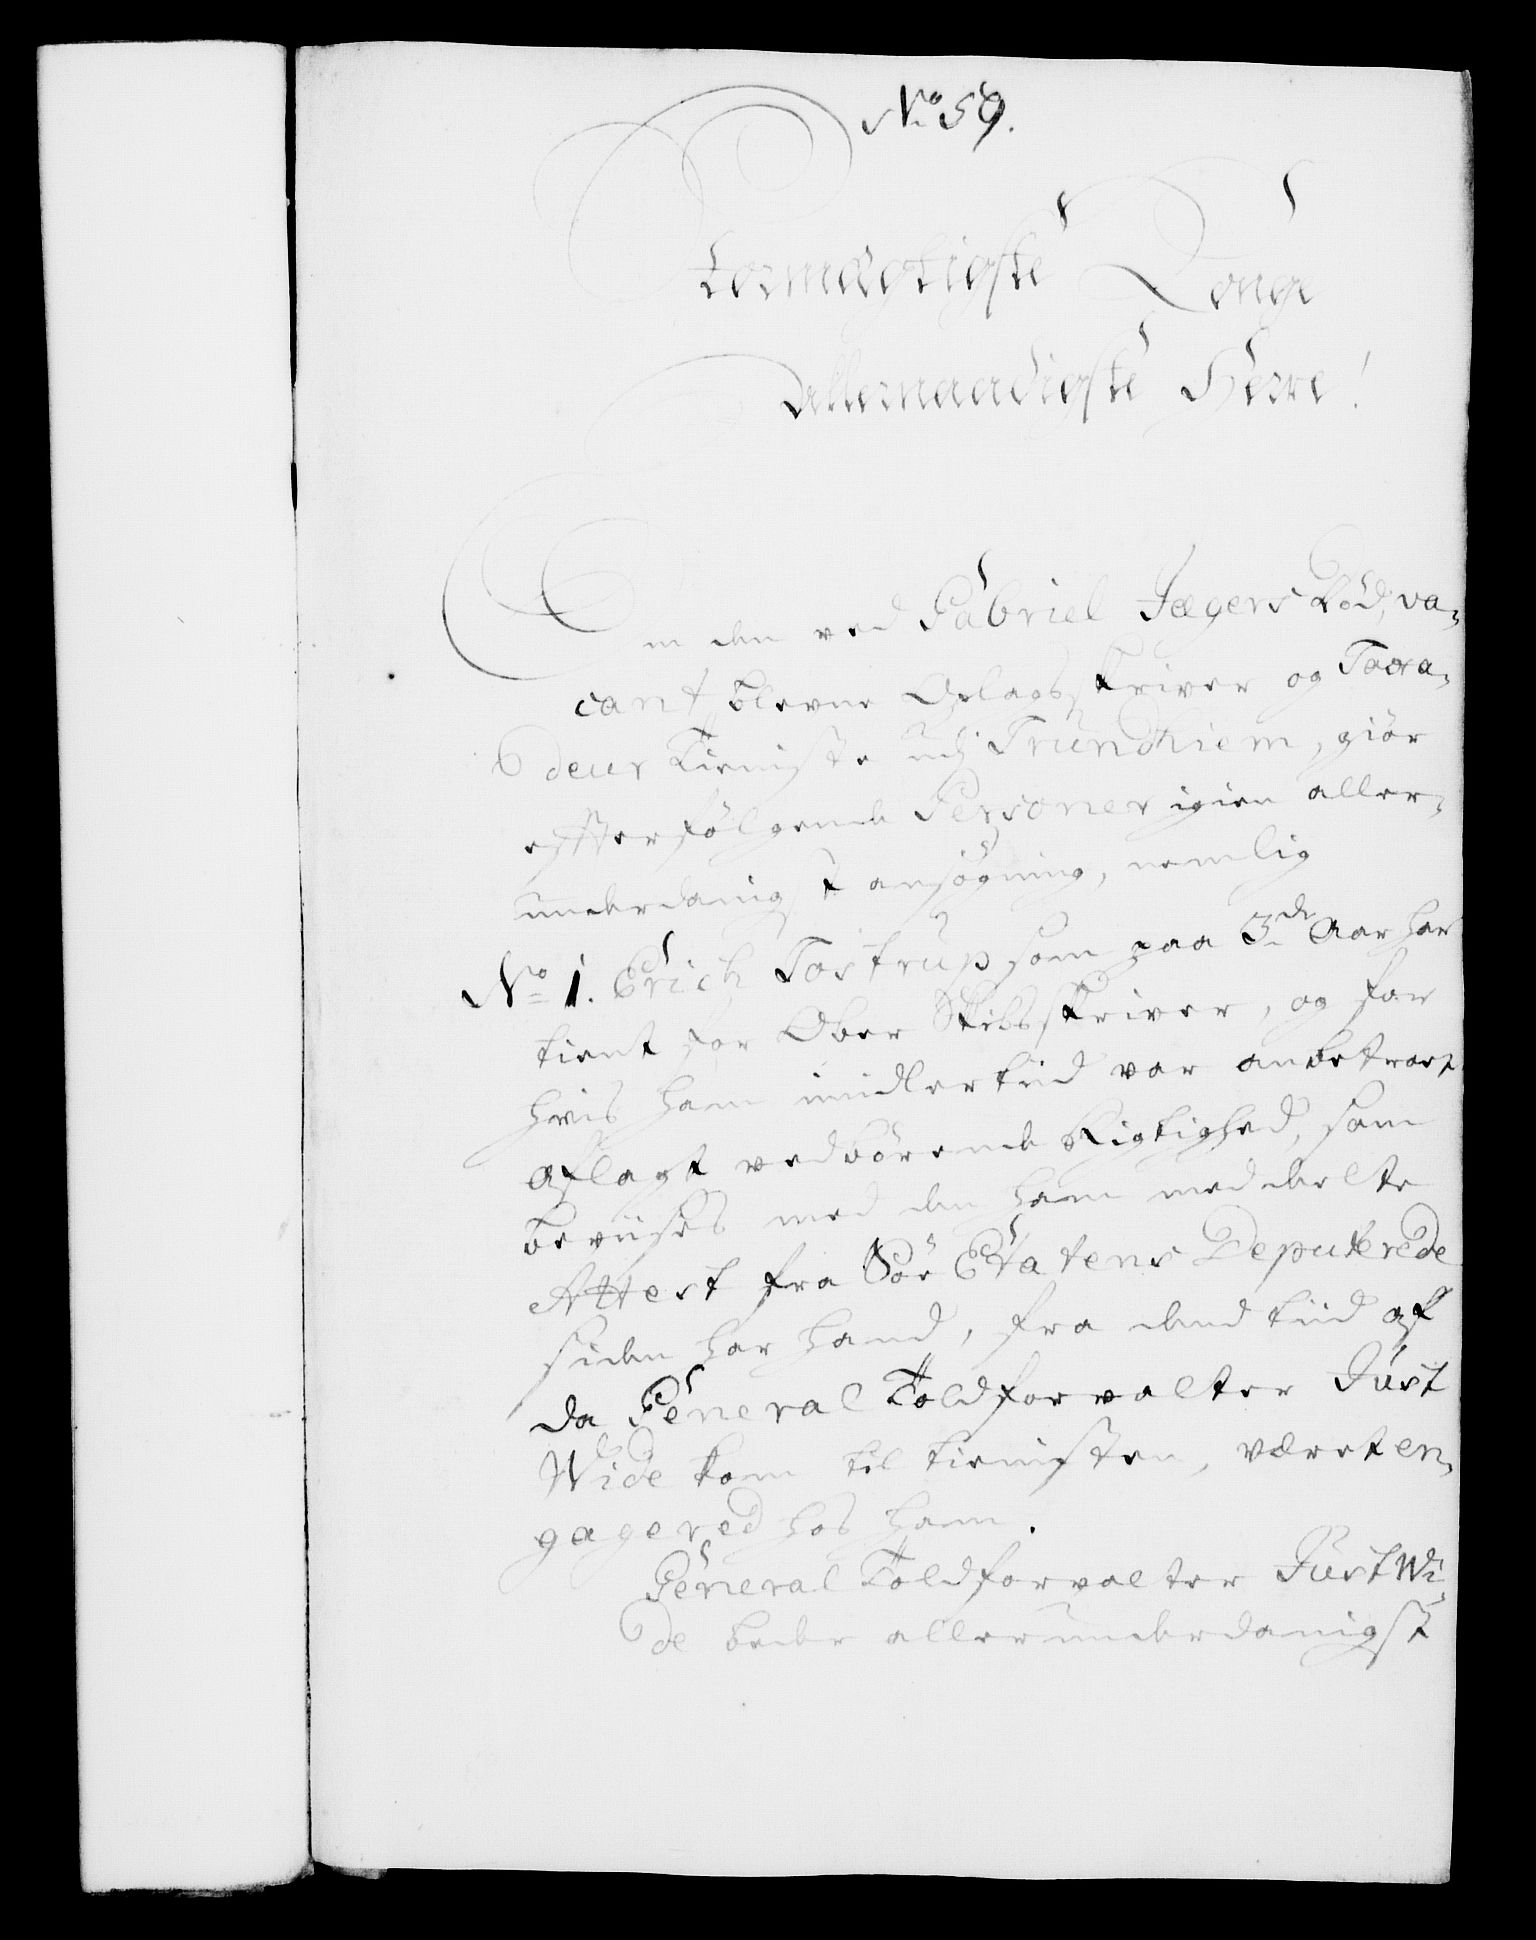 No 59.
Stormægtigste Konge
Allernaadigste Herre!
Om den ved Gabriel Jægers död, va-
cant blevne Oplagsskriver og Taxa-
deur Tieniste udj Trundhiem, giör
efterfölgende Personer igien aller-
underdanigst ansögning, nemlig
No 1. Erich Tostrup som paa 3de Aar har
tient for Ober Skibsskriver, og for
hvis ham imidlertiid var anbetroet
aflagt vedbörende Rigtighed, som
beviises med den ham meddeelte
Attest fra Söe Etatens Deputerede
siden har hand, fra dend tiid af
da General Toldforvalter Just
Wide kom til tienisten, været en-
gagered hos ham.
General Toldforvalter Just Wi-
de beder allerunderdanigst